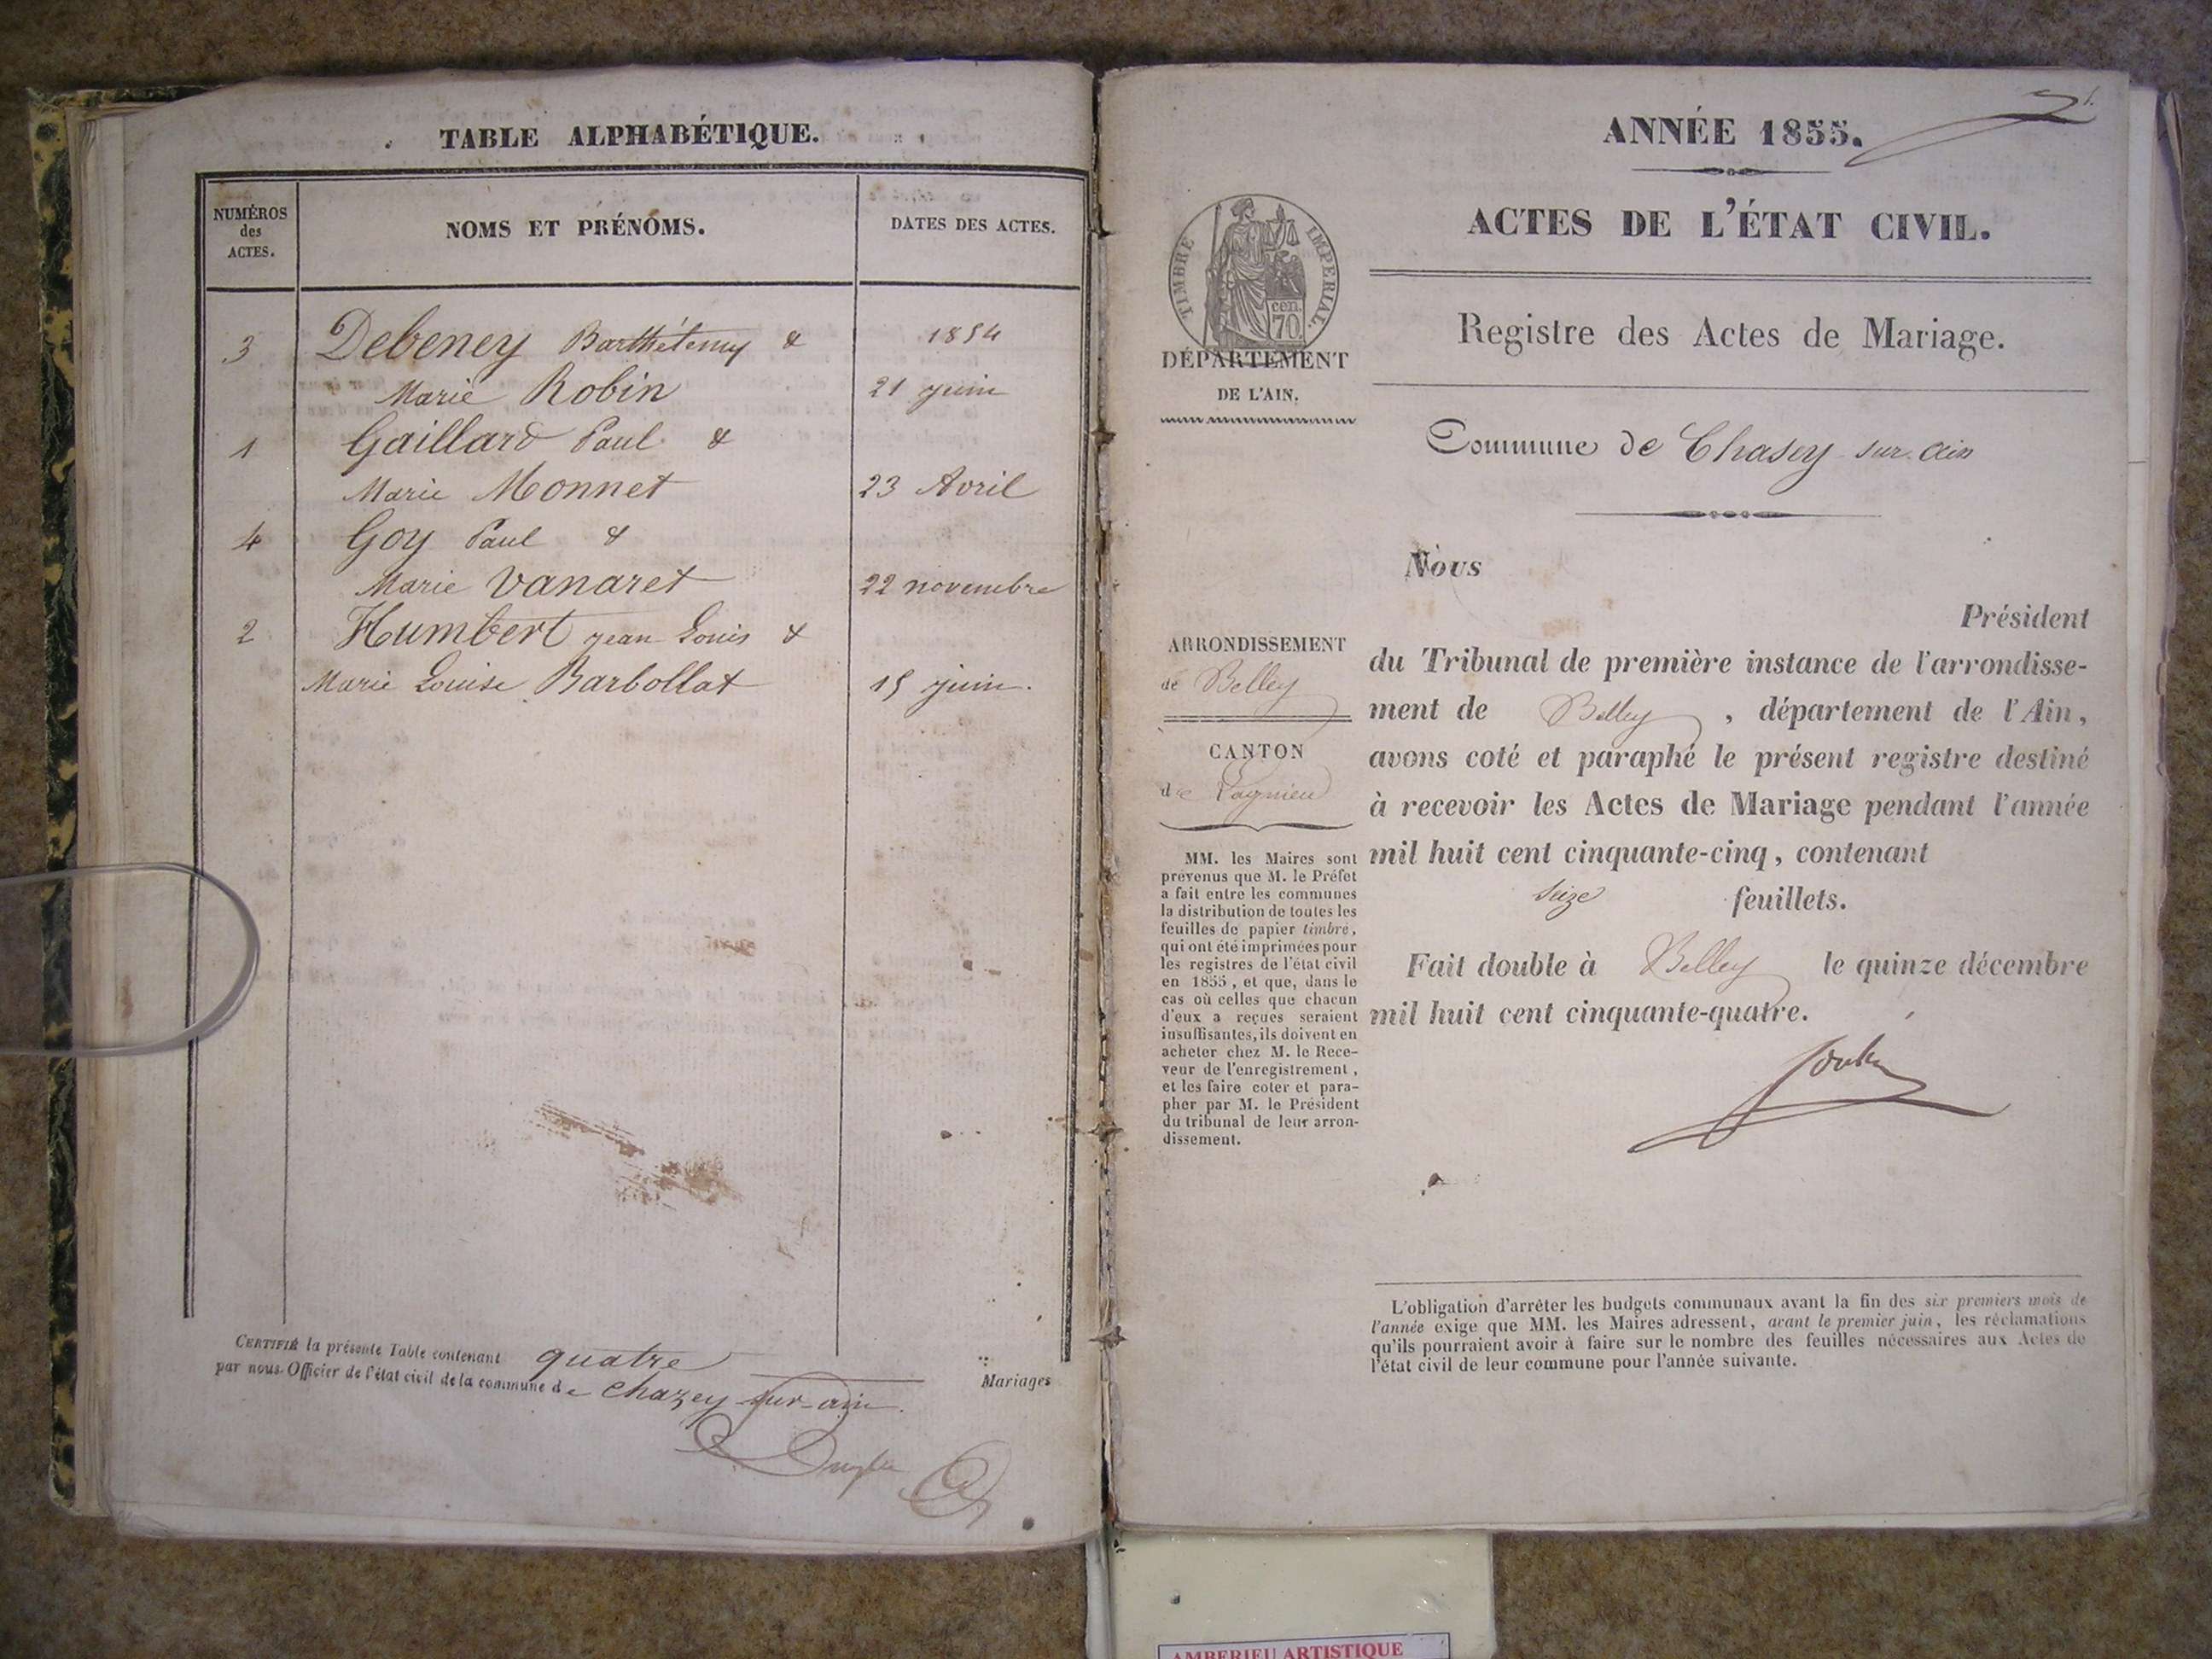 TABLE ALPHABÉTIQUE.
NUMÉROS
des
ACTES.
NOMS ET PRÉNOMS.
DATES DES ACTES.
3 Debeney Barthélemy & 1854
Marie Robin 21 juin
1 Gaillard Paul &
Marie Monnet 23 Avril
4 Goy Paul &
Marie Vanaret 22 novembre
2 Humbert jean Louis &
Marie Louise Barbollat 15 juin.
CERTIFIÉ la présente Table contenant quatre Mariages
par nous Officier de l'état civil de la commune de Chazey sur-ain.
ANNÉE 1855.
ACTES DE L'ÉTAT CIVIL.
TIMBRE IMPERIAL.
cen.
70
DÉPARTEMENT
DE L'AIN.
Registre des Actes de Mariage.
Commune de Chasey sur ain
ARRONDISSEMENT
de Belley
CANTON
de Lagnieu
MM. les Maires sont
prévenus que M. le Préfet
a fait entre les communes
la distribution de toutes les
feuilles de papier timbré,
qui ont été imprimées pour
les registres de l'état civil
en 1855, et que, dans le
cas où celles que chacun
d'eux a reçues seraient
insuffisantes, ils doivent en
acheter chez M. le Rece-
veur de l'enregistrement,
et les faire coter et para-
pher par M. le Président
du tribunal de leur arron-
dissement.
Nous
Président
du Tribunal de première instance de l'arrondisse-
ment de Belley, département de l'Ain,
avons coté et paraphé le présent registre destiné
à recevoir les Actes de Mariage pendant l'année
mil huit cent cinquante-cinq, contenant
seize feuillets.
Fait double à Belley le quinze décembre
mil huit cent cinquante-quatre.
L'obligation d'arrêter les budgets communaux avant la fin des six premiers mois de
l'année exige que MM. les Maires adressent, avant le premier juin, les réclamations
qu'ils pourraient avoir à faire sur le nombre des feuilles nécessaires aux Actes de
l'état civil de leur commune pour l'année suivante.
AMBERIEU ARTISTIQUE